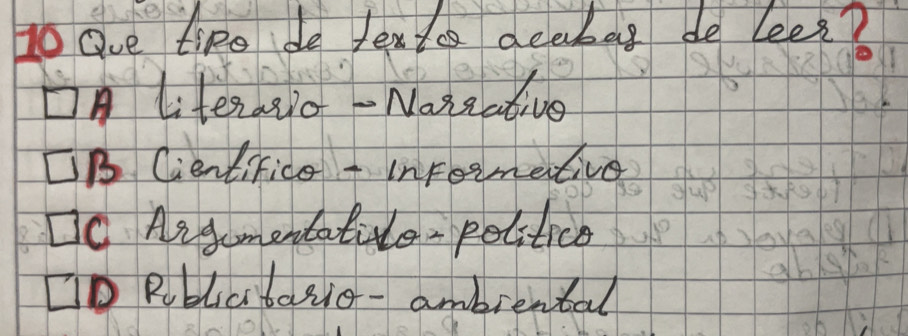 10 Que tipo de texto acabas de leer?
A Literario - Narrativo
B Científico - Informativo
C Argumentativo - politico
D Publicitario - ambiental